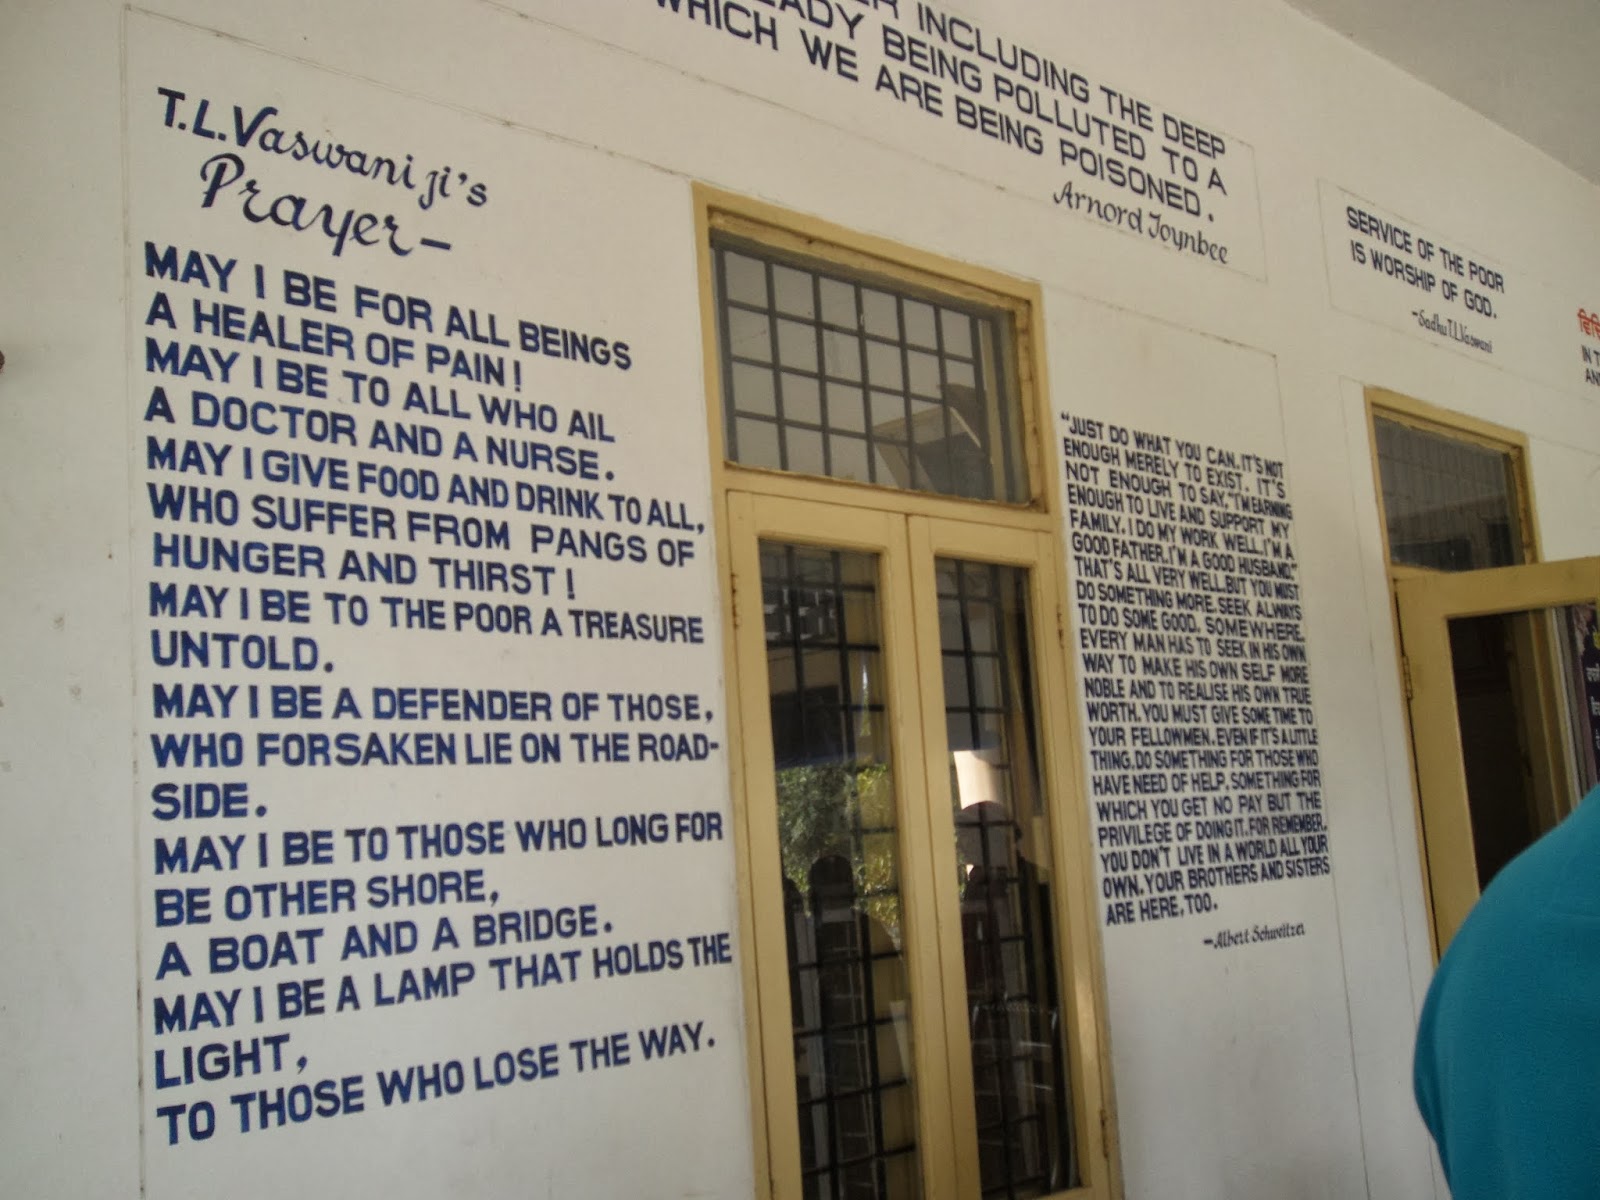 T.L.Vaswani ji's
Prayer -
MAY I BE FOR ALL BEINGS
A HEALER OF PAIN!
MAY I BE TO ALL WHO AIL
A DOCTOR AND A NURSE.
MAY I GIVE FOOD AND DRINK TO ALL,
WHO SUFFER FROM PANGS OF
HUNGER AND THIRST!
MAY I BE TO THE POOR A TREASURE
UNTOLD.
MAY I BE A DEFENDER OF THOSE,
WHO FORSAKEN LIE ON THE ROAD-
SIDE.
MAY I BE TO THOSE WHO LONG FOR
BE OTHER SHORE,
A BOAT AND A BRIDGE.
MAY I BE A LAMP THAT HOLDS THE
LIGHT,
TO THOSE WHO LOSE THE WAY.
INCLUDING THE DEEP
BEING POLLUTED TO A
WHICH WE ARE BEING POISONED.
Arnord Toynbee
"JUST DO WHAT YOU CAN. IT'S NOT
ENOUGH MERELY TO EXIST. IT'S
NOT ENOUGH TO SAY, "I'M EARNING
ENOUGH TO LIVE AND SUPPORT MY
FAMILY. I DO MY WORK WELL. I'M A
GOOD FATHER. I'M A GOOD HUSBAND."
THAT'S ALL VERY WELL. BUT YOU MUST
DO SOMETHING MORE. SEEK ALWAYS
TO DO SOME GOOD, SOMEWHERE.
EVERY MAN HAS TO SEEK IN HIS OWN
WAY TO MAKE HIS OWN SELF MORE
NOBLE AND TO REALISE HIS OWN TRUE
WORTH. YOU MUST GIVE SOME TIME TO
YOUR FELLOWMEN. EVEN IF IT'S A LITTLE
THING. DO SOMETHING FOR THOSE WHO
HAVE NEED OF HELP. SOMETHING FOR
WHICH YOU GET NO PAY BUT THE
PRIVILEGE OF DOING IT. FOR REMEMBER,
YOU DON'T LIVE IN A WORLD ALL YOUR
OWN. YOUR BROTHERS AND SISTERS
ARE HERE, TOO.
-Albert Schweitzer
SERVICE OF THE POOR
IS WORSHIP OF GOD.
-Sadhu T.L.Vaswani